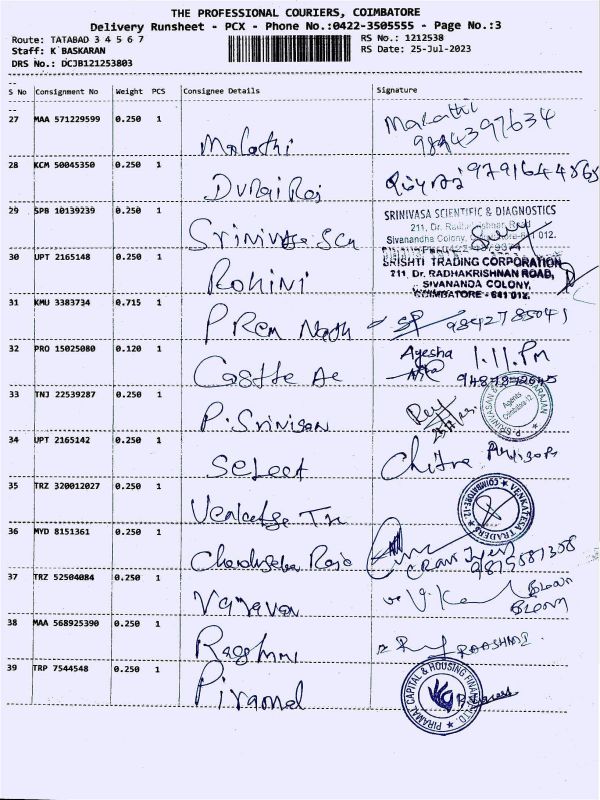 THE PROFESSIONAL COURIERS, COIMBATORE
Delivery Runsheet - PCX - Phone No.:0422-3505555 - Page No.:3
Route: TATABAD 3 4 5 6 7 RS No.: 1212538
Staff: K BASKARAN RS Date: 25-Jul-2023
DRS No.: DCJB121253803
S No Consignment No Weight PCS Consignee Details Signature
27 MAA 571229599 0.250 1 Malathi Malathi
9894397634
28 KCM 50045350 0.250 1 Durai Raj 9791644865
29 SPB 10139239 0.250 1 Srinivasa Scn SRINIVASA SCIENTIFIC & DIAGNOSTICS
211, Dr. Radhakrishnan Road
Sivanandha Colony, Coimbatore-641 012.
30 UPT 2165148 0.250 1 Rohini SRISHTI TRADING CORPORATION
211, Dr. RADHAKRISHNAN ROAD,
SIVANANDA COLONY,
COIMBATORE - 641 012.
31 KMU 3383734 0.715 1 Prem Nath SP 9842785041
32 PRO 15025080 0.120 1 Castle Ae Ayesha 1.11.Pm
33 TNJ 22539287 0.250 1 P. Srinisan
34 UPT 2165142 0.250 1 Select Chitra
35 TRZ 320012027 0.250 1 Venkatesa Tr VENKATESA TRADERS ★ COIMBATORE-12 ★
36 MYD 8151361 0.250 1 Chandrasekar Raja
37 TRZ 52504084 0.250 1 Vajravan
38 MAA 568925390 0.250 1 Rashmi RAASHMI
39 TRP 7544548 0.250 1 Piramal PIRAMAL CAPITAL & HOUSING FINANCE LTD.